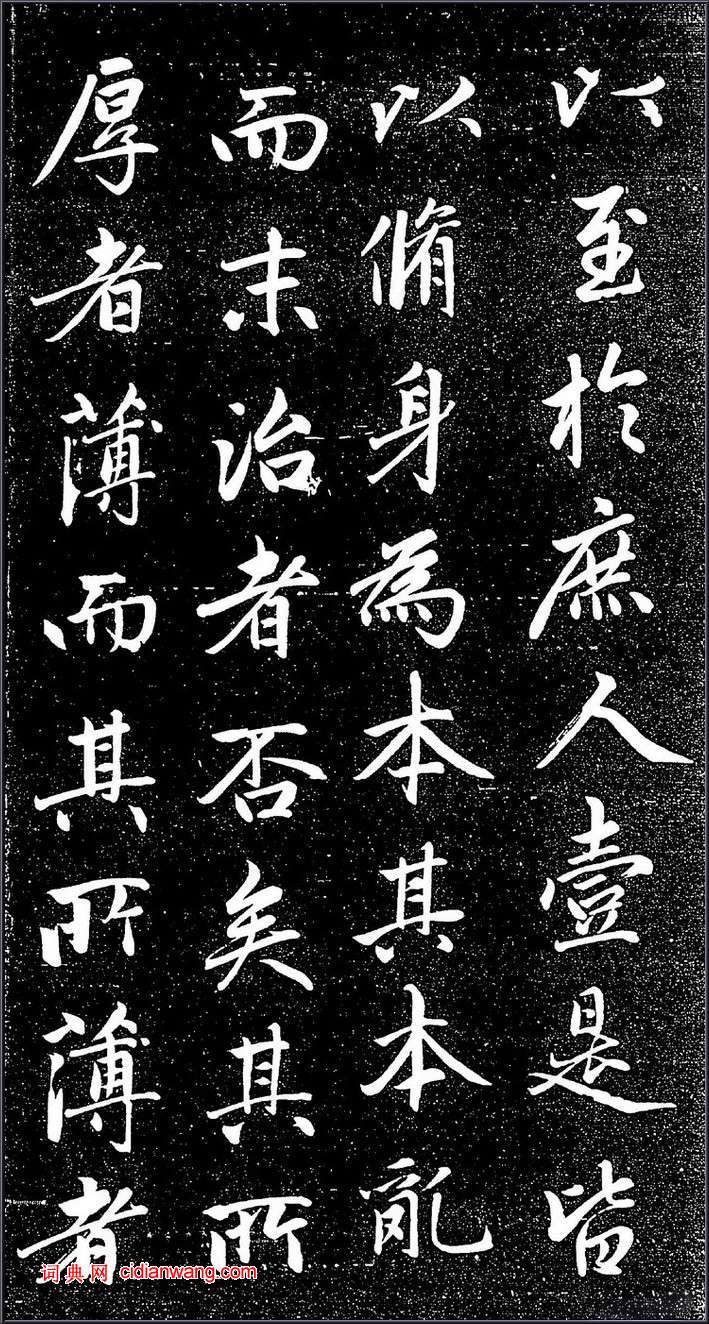 以至於庶人壹是皆
以脩身為本其本亂
而末治者否矣其所
厚者薄而其所薄者
词典网 cidianwang.com